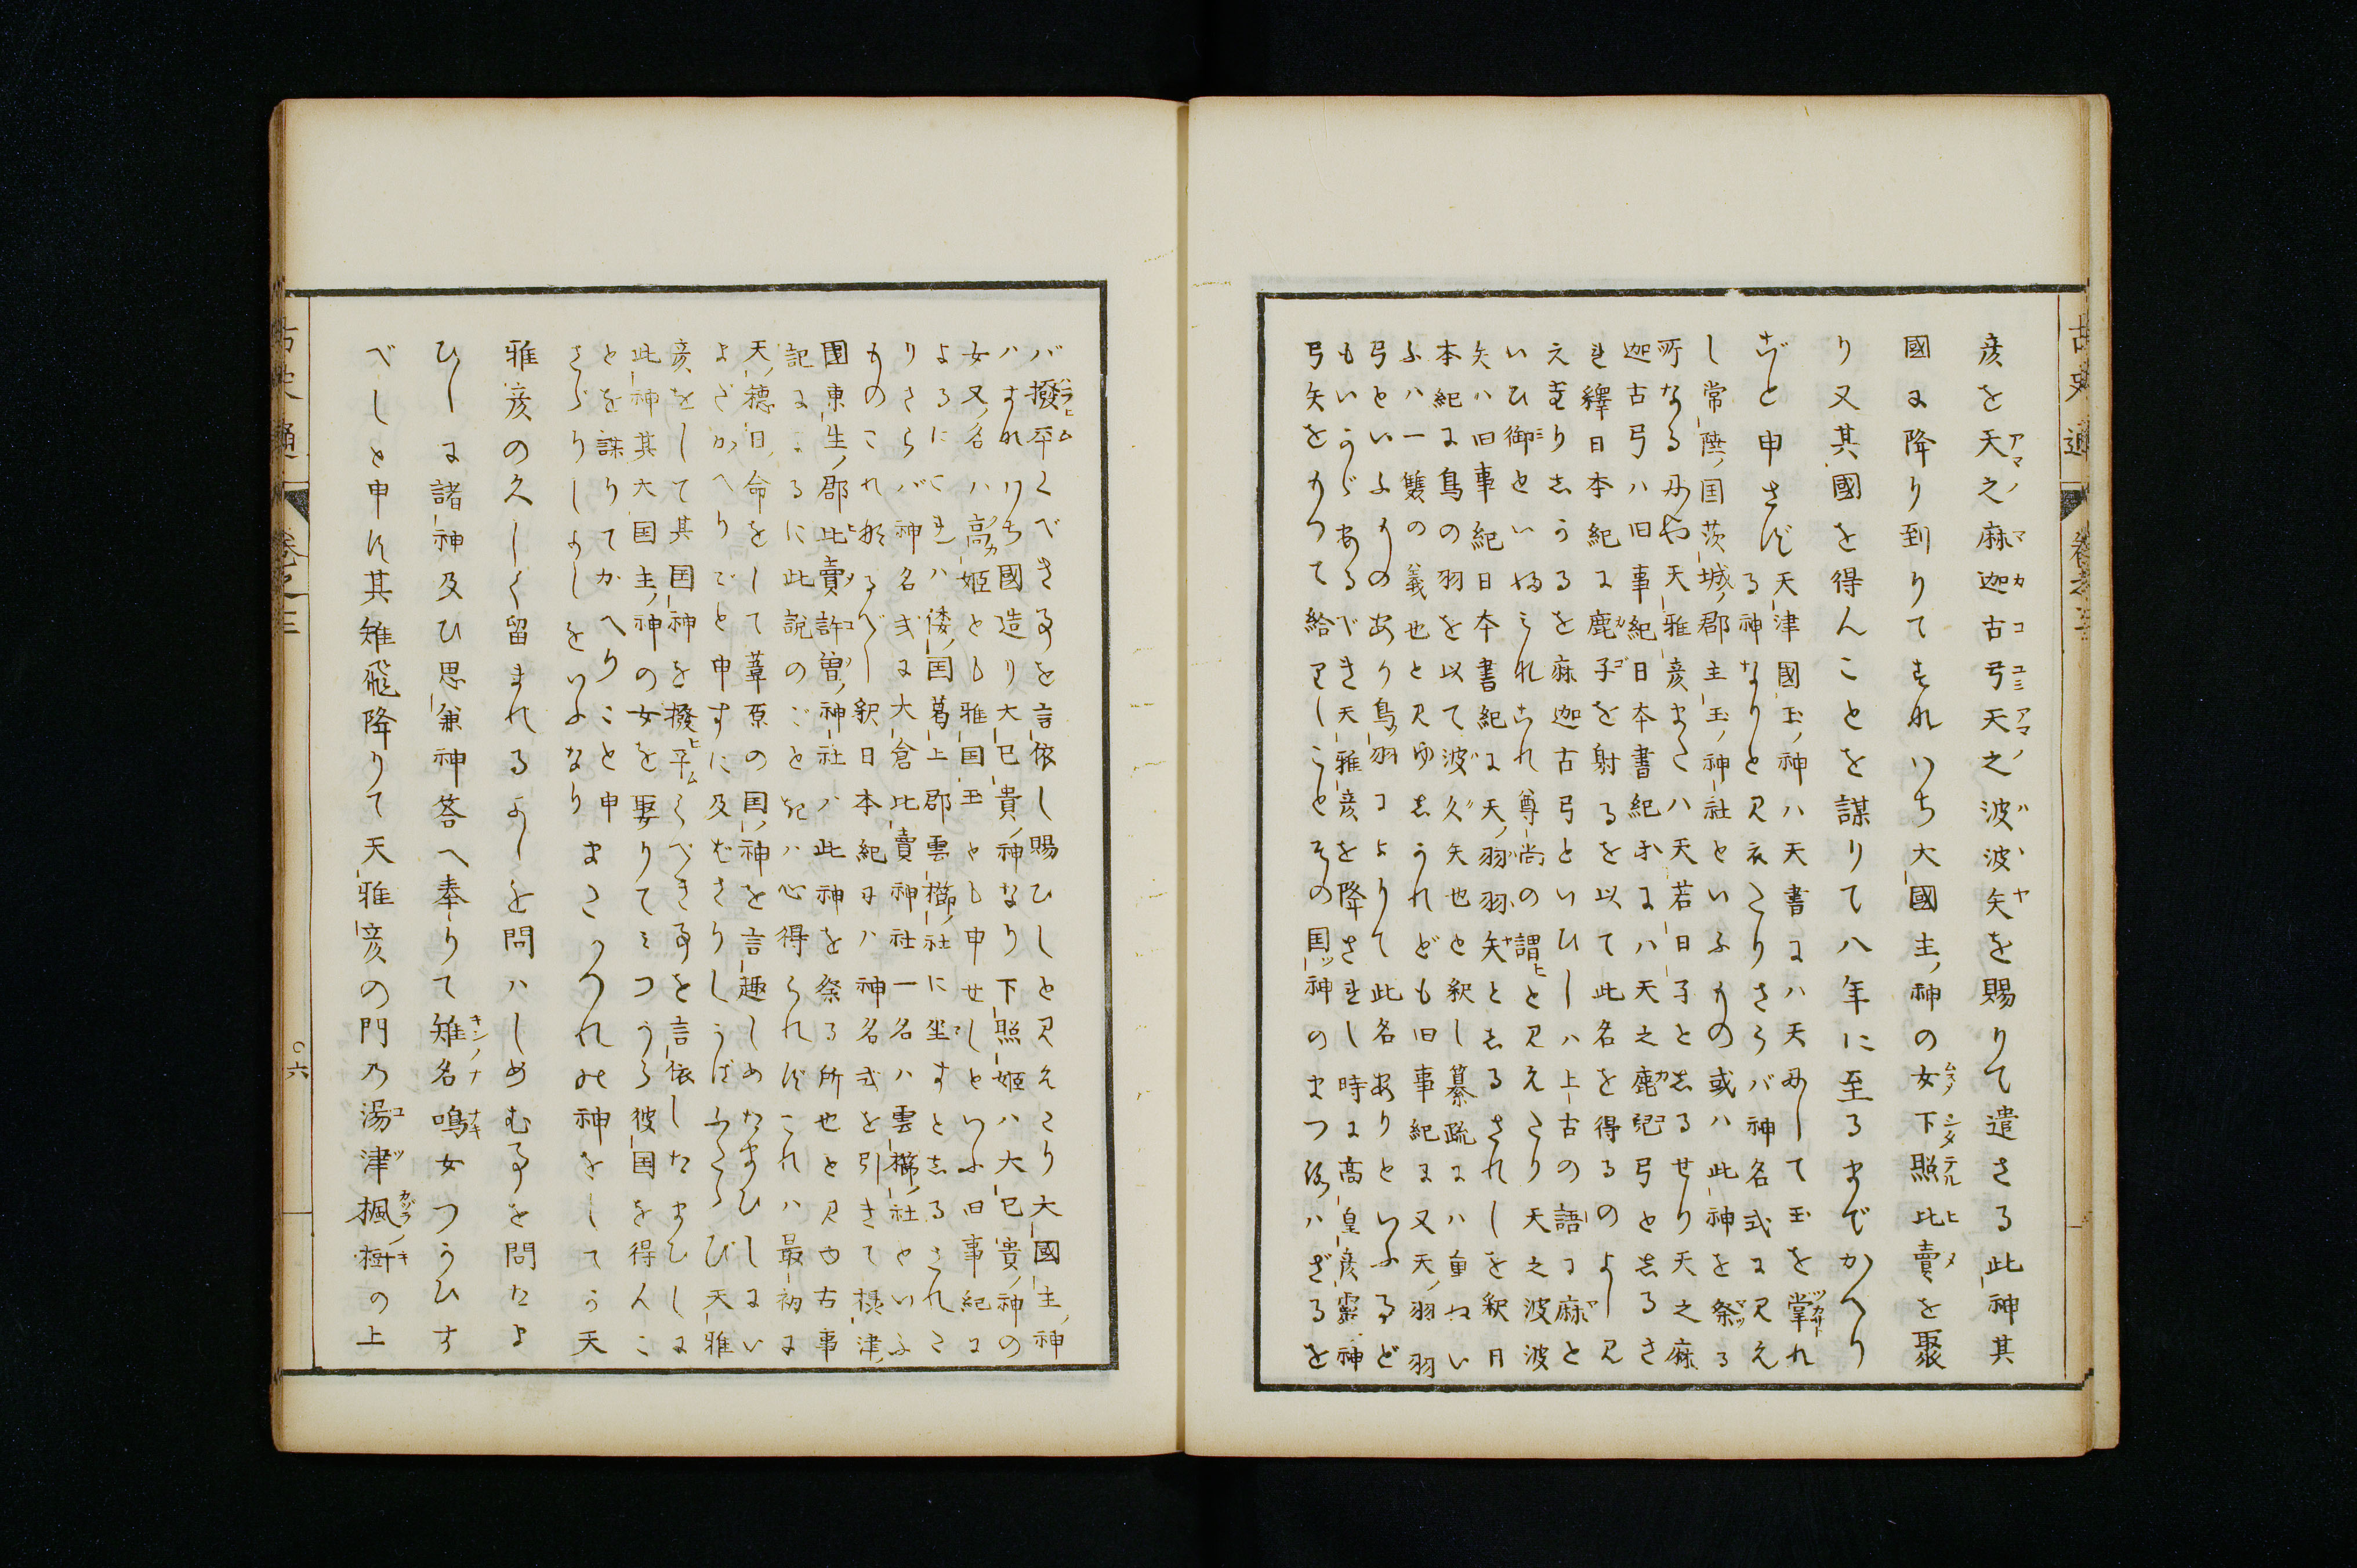 彦を天之麻迦古弓天之波波矢を賜りて遣さる此神其
國に降り到りてすなハち大國主神の女下照比賣を聚
り又其國を得んことを謀りて八年に至るまでかへり
ごと申さず
天津國玉神ハ天書にハ天にして玉を掌れ
る神なりと見えたりさらバ神名式に見え
し常陸国茨城郡主玉神社といふもの或ハ此神を祭る
所なるにや天雅彦またハ天若日子としるせり天之麻
迦古弓ハ旧事紀日本書紀等にハ天之鹿兒弓としるさ
れ釋日本紀に鹿子を射るを以て此名を得るのよし見
えたりしかるを麻迦古弓といひしハ上古の語に麻と
いひ御といふこれこれ尊尚の謂と見えたり天之波波
矢ハ旧事紀日本書紀に天羽羽矢としるされしを釈日
本紀に鳥の羽を以て波久矢也と釈し纂疏にハ重ねい
ふハ一雙の義也と見ゆしかれども旧事紀に又天羽羽
弓といふものあり鳥羽によりて此名ありといふるど
もいかゞあるべき天雅彦を降されし時に高皇彦霊神
弓矢をもつて給りしことその国神のまつろハざるを
バ撥平くべき事を言依し賜ひしと見えたり大國主神
ハすなハち國造り大已貴神なり下照姫ハ大已貴神の
女又名ハ高姫とも雅国玉とも申せしといふ旧事紀に
よるにこれハ倭国葛上郡雲櫛社に坐すとしるされた
りさらバ神名式に大倉比賣神社一名ハ雲櫛社といふ
ものこれなるべし釈日本紀にハ神名式を引きて攝津
國東生郡比賣許曽神社ハ此神を祭る所也と見ゆ古事
記によるに此説のごときハ心得られずこれハ最初に
天穂日命をして葦原の国神を言趣しめたまひしにい
よざかへりごと申すに及ばざりしかばふたゝび天雅
彦をして其国神を撥平くべき事を言依したまひしに
此神其大国主神の女を娶りてミづから彼国を得んこ
とを謀りてかへりこと申
さゞりしよしをいふなり
まこゝのれの神をしてか天
雅彦の久しく留まれるよしを問ハしめむ事を問たま
ひしに諸神及ひ思兼神荅へ奉りて雉名鳴女つかひす
べしと申す其雉飛降りて天雅彦の門乃湯津楓樹の上
古史通
巻之三
六